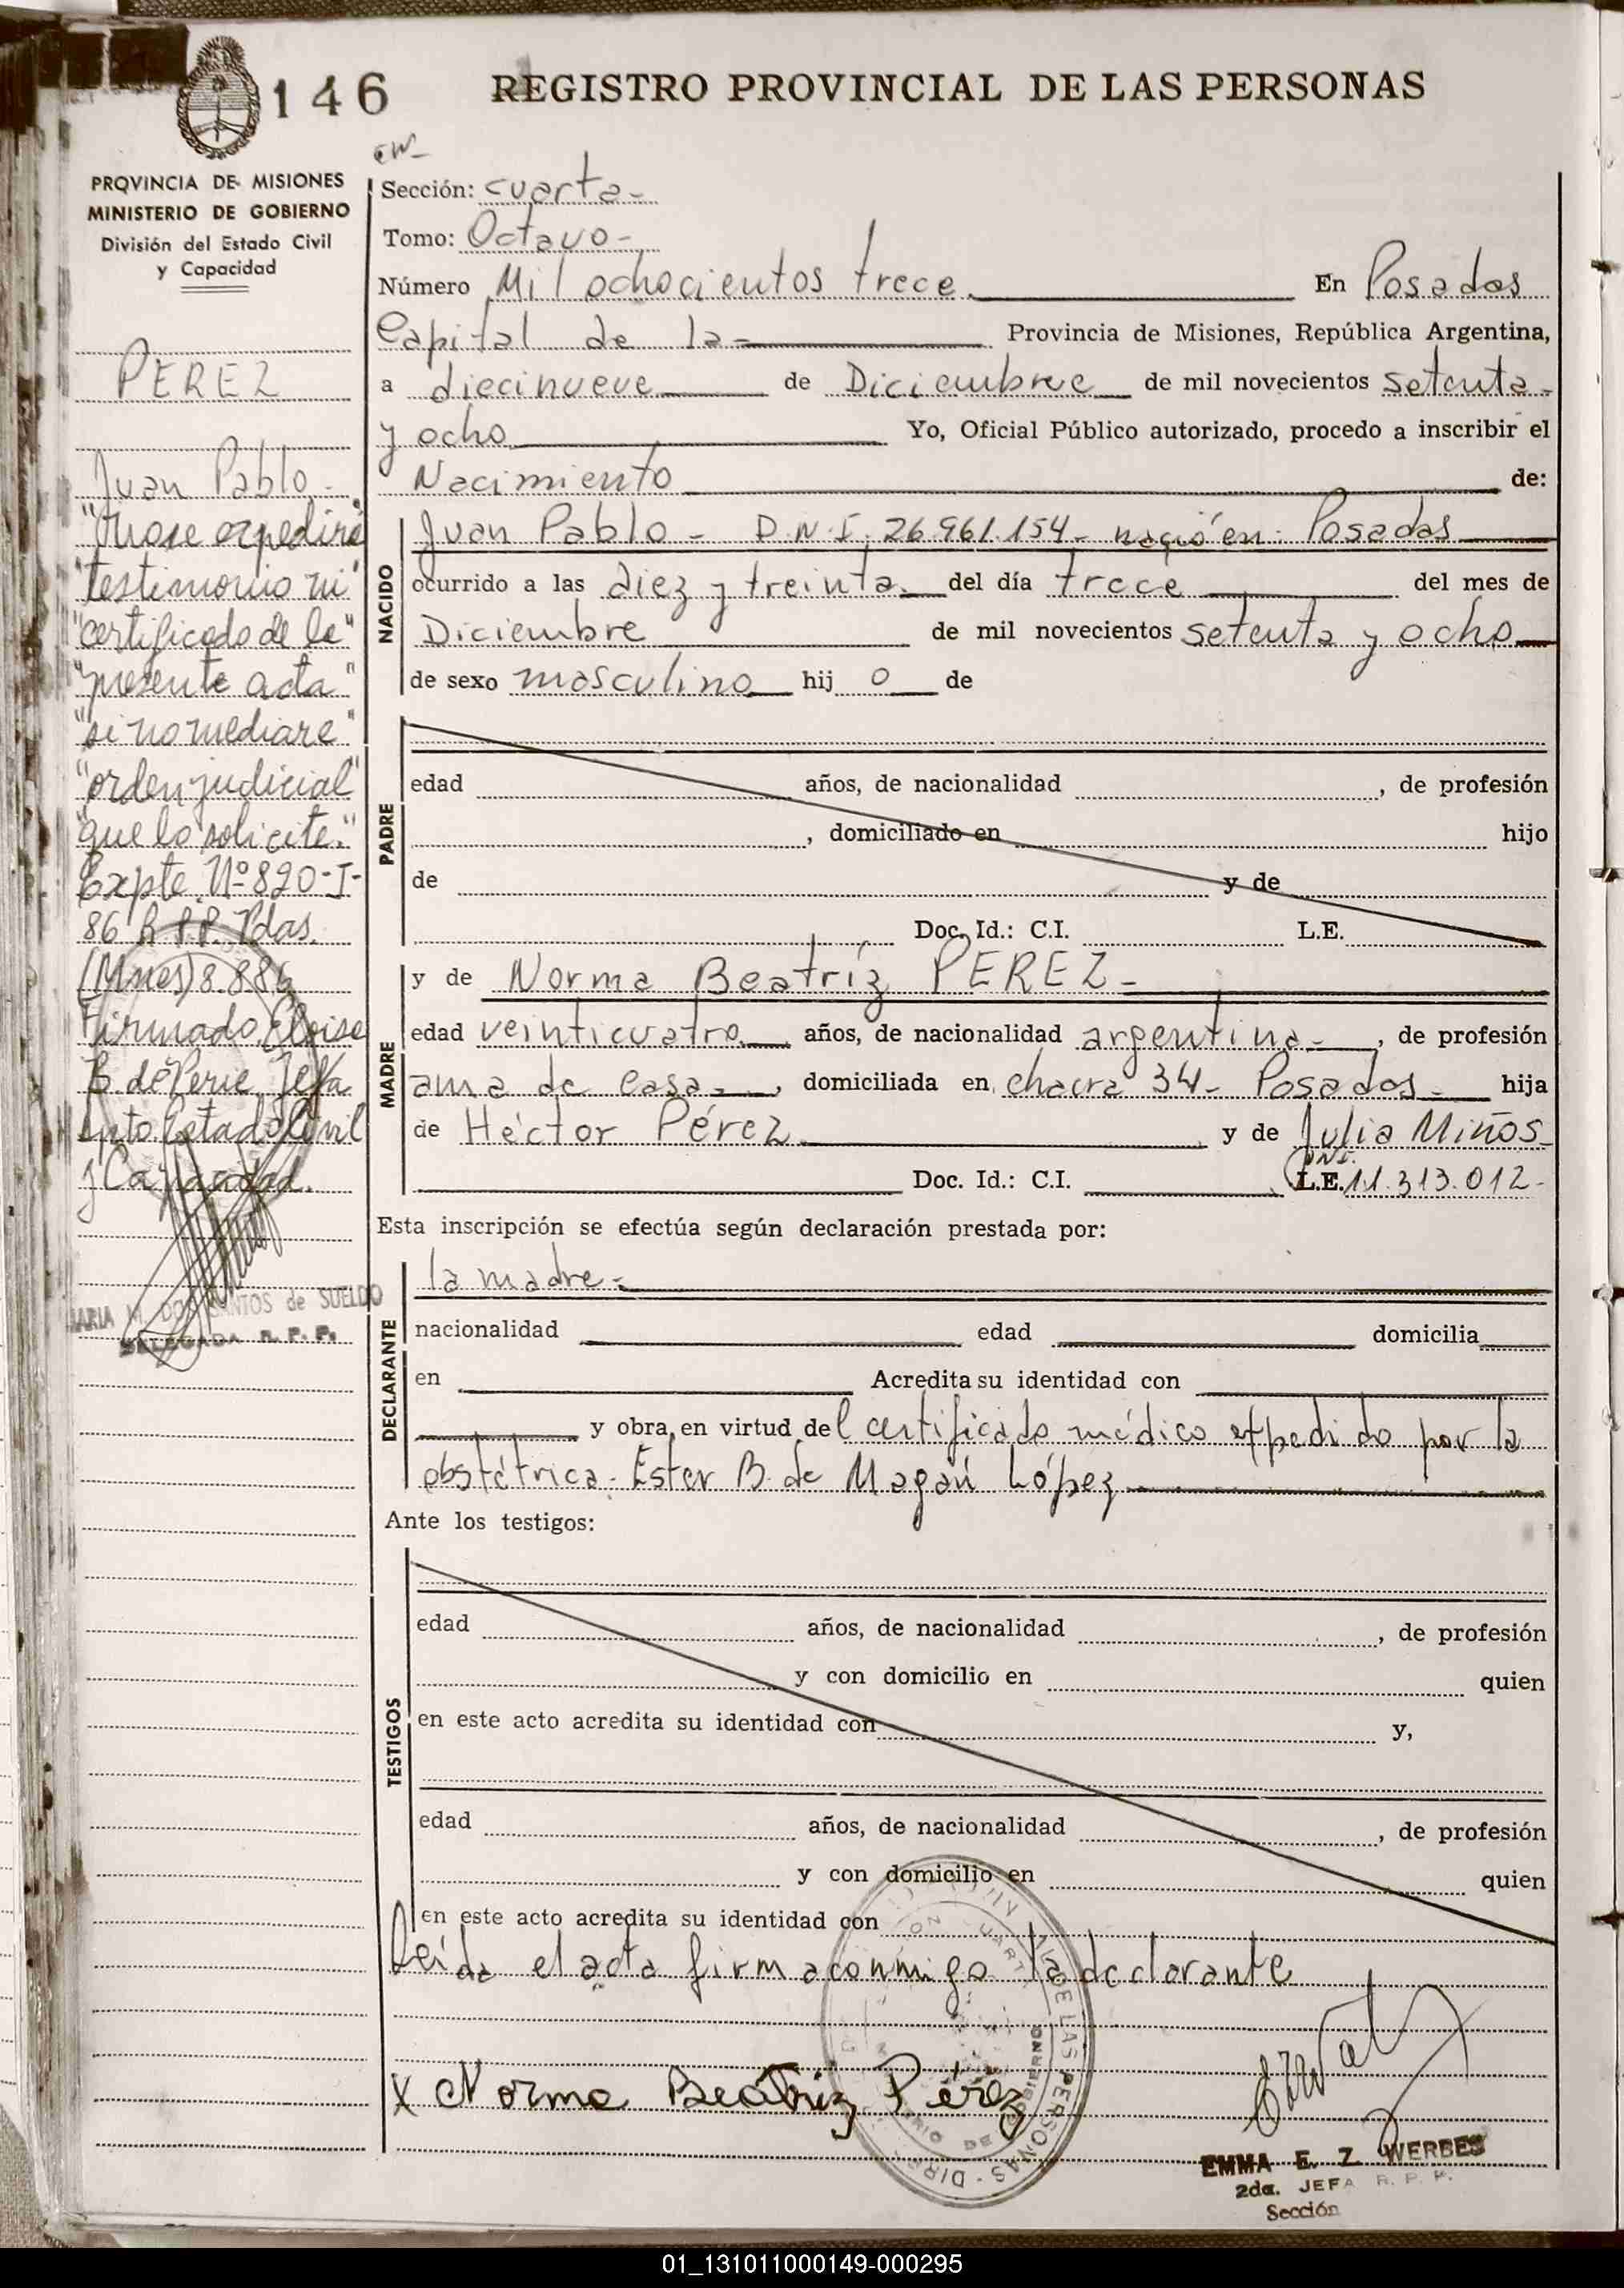 146
REGISTRO PROVINCIAL DE LAS PERSONAS
PROVINCIA DE MISIONES
MINISTERIO DE GOBIERNO
División del Estado Civil
y Capacidad
PEREZ
Juan Pablo.-
"No se expedirá
"testimonio ni"
"certificado de la"
"presente acta"
"si no mediare"
"orden judicial"
"que lo solicite."
Expte. Nº 820-I-
86 R.P.P. Pdas.
(Mnes) 8.8.86
Firmado, Eloisa
B. de Perie, Jefa
Dpto Estado Civil
y Capacidad.
MARIA M. DOS SANTOS de SUELDO
DELEGADA R. P. P.
Sección: cuarta-
Tomo: Octavo-
Número Mil ochocientos trece. En Posadas
Capital de la- Provincia de Misiones, República Argentina,
a diecinueve de Diciembre de mil novecientos setenta-
y ocho Yo, Oficial Público autorizado, procedo a inscribir el
Nacimiento de:
NACIDO
Juan Pablo - D.N.I. 26.961.154- nació en: Posadas
ocurrido a las diez y treinta. del día trece del mes de
Diciembre de mil novecientos setenta y ocho
de sexo masculino hij o de
PADRE
edad años, de nacionalidad , de profesión
, domiciliado en hijo
de y de
Doc. Id.: C.I. L.E.
MADRE
y de Norma Beatríz PEREZ-
edad veinticuatro. años, de nacionalidad argentina.- , de profesión
ama de casa- , domiciliada en chacra 34- Posadas- hija
de Héctor Pérez y de Julia Miños-
DNI.
Doc. Id.: C.I. L.E. 11.313.012-
Esta inscripción se efectúa según declaración prestada por:
DECLARANTE
la madre-
nacionalidad edad domicilia
en Acredita su identidad con
y obra, en virtud del certificado médico expedido por la
obstétrica- Ester B. de Magán López
Ante los testigos:
TESTIGOS
edad años, de nacionalidad , de profesión
y con domicilio en quien
en este acto acredita su identidad con y,
edad años, de nacionalidad , de profesión
y con domicilio en quien
en este acto acredita su identidad con
Leída el acta firma conmigo la declarante
X Norma Beatriz Pérez
DE LAS PERSONAS
EMMA E. Z. WERBES
2da. JEFA R. P. P.
Sección
01_131011000149-000295